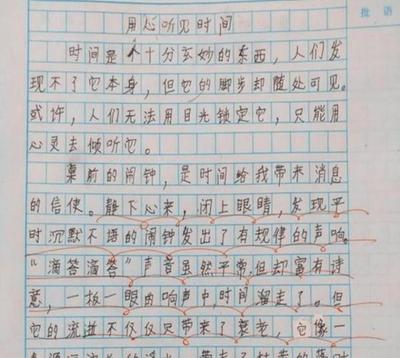 批语
用心听见时间
时间是个十分玄妙的东西，人们发
现不了它本身，但它的脚步却随处可见。
或许，人们无法用目光锁定它，只能用
心灵去倾听它。
桌前的闹钟，是时间给我带来消息
的信使。静下心来，闭上眼睛，发现平
时沉默不语的闹钟发出了有规律的声响。
“滴答滴答”声音虽然平常，但却富有诗
意，一板一眼的响声中，时间溜走了。但
它的流逝不仅仅只带来了衰老，它像一